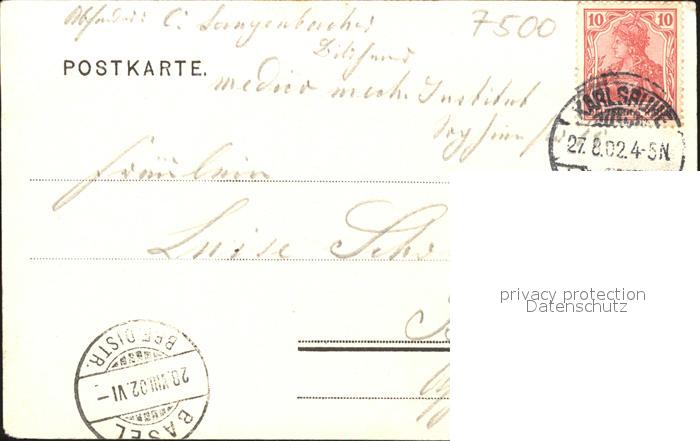 Absender: C. Langenbacher
7500
10 10
POSTKARTE.
medico mech. Institut
KARLSRUHE
27.8.02.4-5N
Fräulein
Luise Sch
privacy protection
Datenschutz
BRF.DISTR.
28.VIII.02.VI-
BASEL